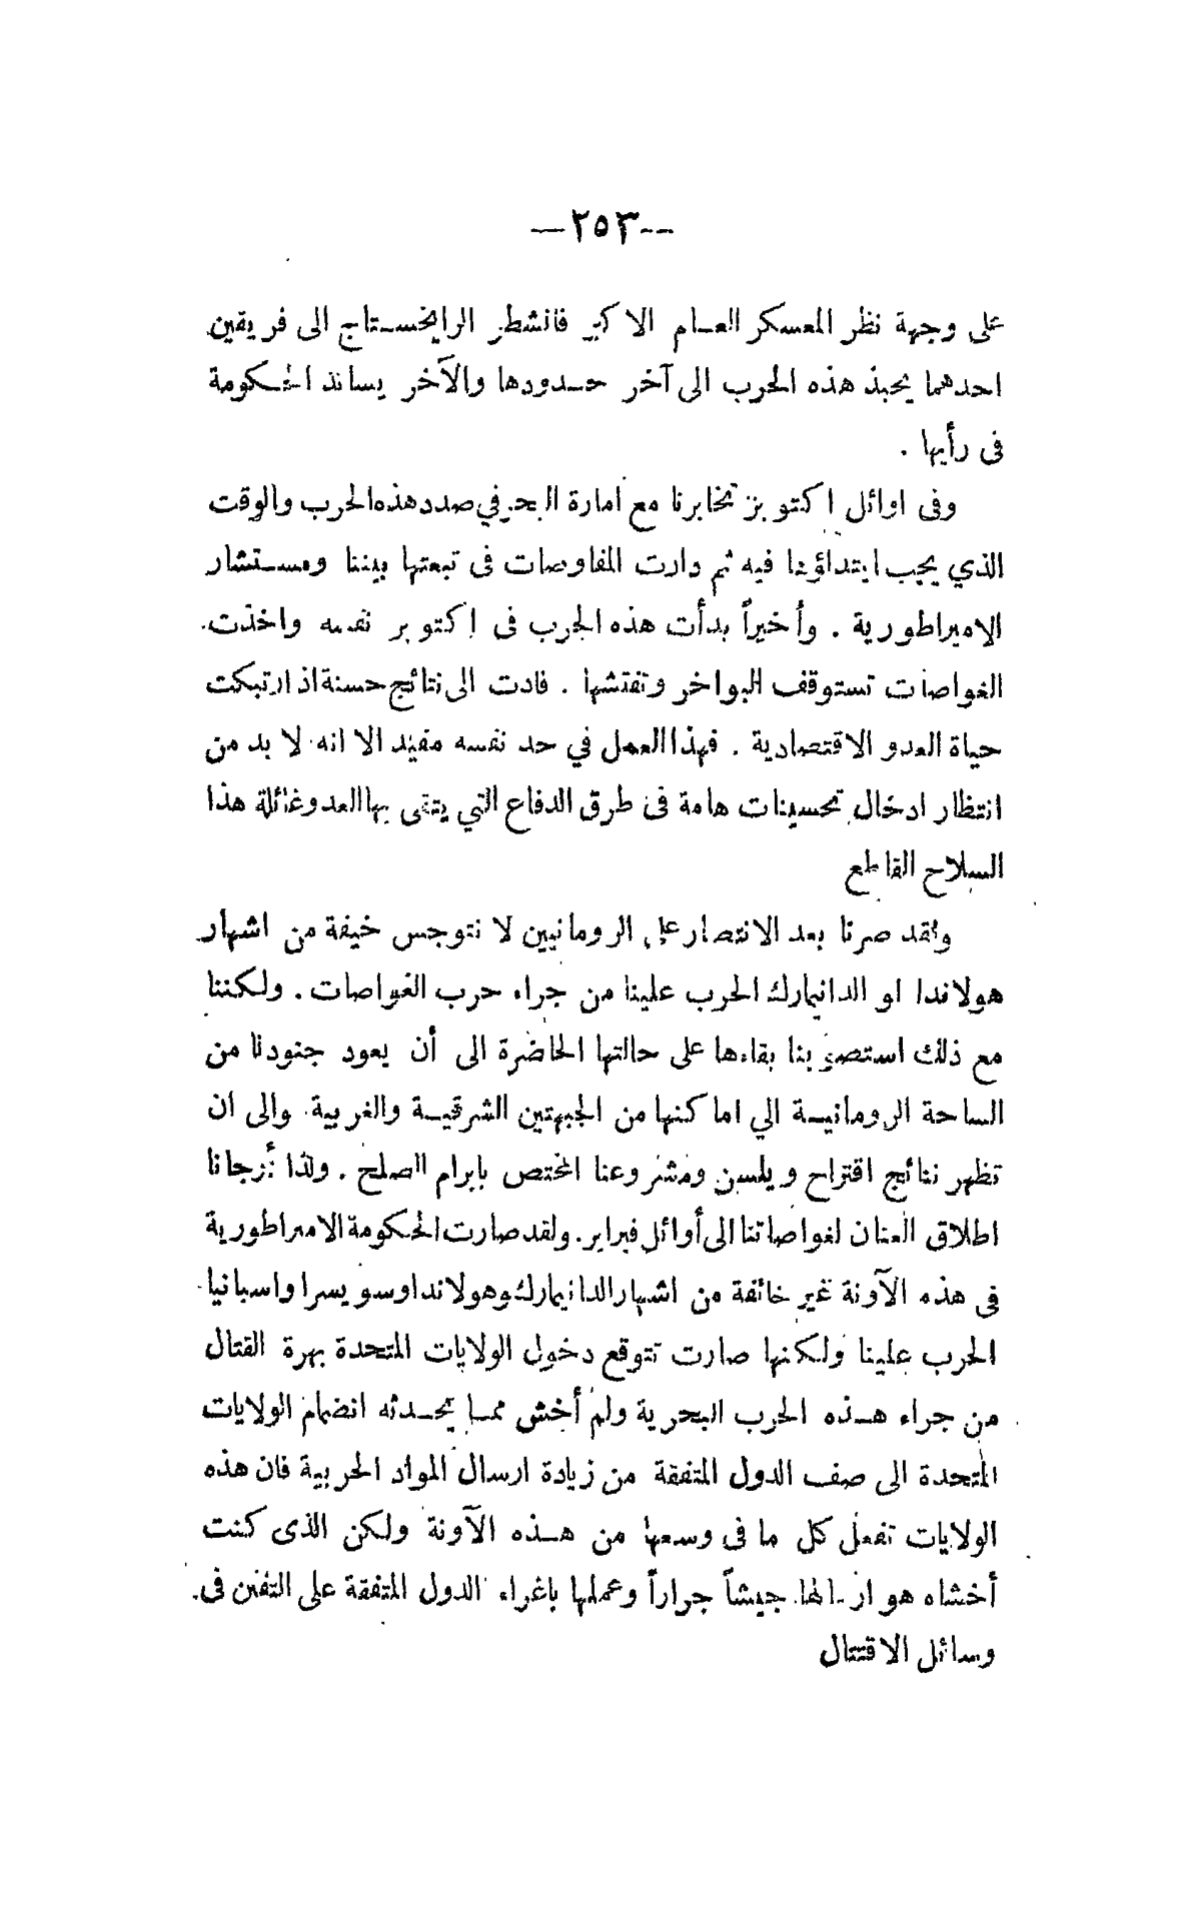 —٢٥٣—
على وجهة نظر المعسكر العام الاكبر فانشطر الرايخستاج الى فريقين
احدهما يحبذ هذه الحرب الى آخر حدودها والآخر يساند الحكومة
فى رأيها .
وفى اوائل اكتوبر تخابرنا مع امارة البحر في صدد هذه الحرب والوقت
الذي يجب ابتداؤنا فيه ثم دارت المفاوضات فى تبعتها بيننا ومستشار
الامبراطورية . وأخيراً بدأت هذه الحرب فى اكتوبر نفسه واخذت
الغواصات تستوقف البواخر وتفتشها . فادت الى نتائج حسنة اذ ارتبكت
حياة العدو الاقتصادية . فهذا العمل في حد نفسه مفيد الا انه لا بد من
انتظار ادخال تحسينات هامة فى طرق الدفاع التي يتقى بها العدو غائلة هذا
السلاح القاطع
ولقد صرنا بعد الانتصار على الرومانيين لا نتوجس خيفة من اشهار
هولاندا او الدانيمارك الحرب علينا من جراء حرب الغواصات . ولكننا
مع ذلك استصوبنا بقاءها على حالتها الحاضرة الى أن يعود جنودنا من
الساحة الرومانية الي اماكنها من الجبهتين الشرقية والغربية والى ان
تظهر نتائج اقتراح ويلسن ومشروعنا المختص بابرام الصلح . ولذا أرجانا
اطلاق العنان لغواصاتنا الى أوائل فبراير . ولقد صارت الحكومة الامبراطورية
فى هذه الآونة غير خائفة من اشهار الدانيمارك وهولاندا وسويسرا واسبانيا
الحرب علينا ولكنها صارت تتوقع دخول الولايات المتحدة بهرة القتال
من جراء هذه الحرب البحرية ولم أخش مما يحدثه انضمام الولايات
المتحدة الى صف الدول المتفقة من زيادة ارسال المواد الحربية فان هذه
الولايات تفعل كل ما فى وسعها من هذه الآونة ولكن الذى كنت
أخشاه هو ارسالها جيشاً جراراً وعملها باغراء الدول المتفقة على التفنن فى
وسائل الاقتتال